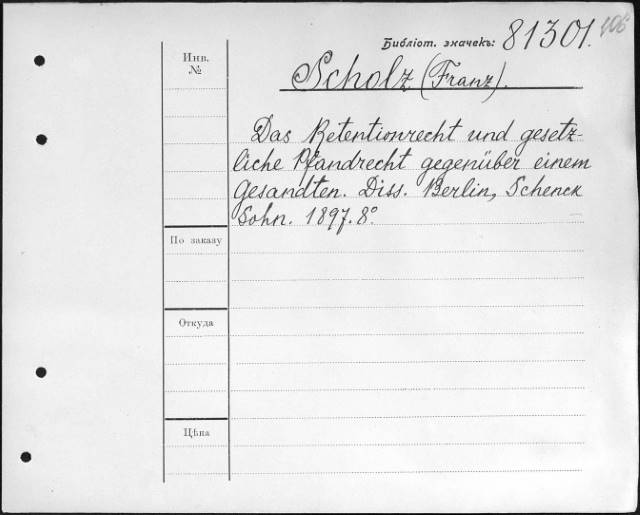 406
Библіот. значекъ: 81301.
Инв.
№
Scholz (Franz).
Das Retentionrecht und gesetz-
liche Pfandrecht gegenüber einem
Gesandten. Diss. Berlin, Schenck
Sohn. 1897. 8°.
По заказу
Откуда
Цѣна